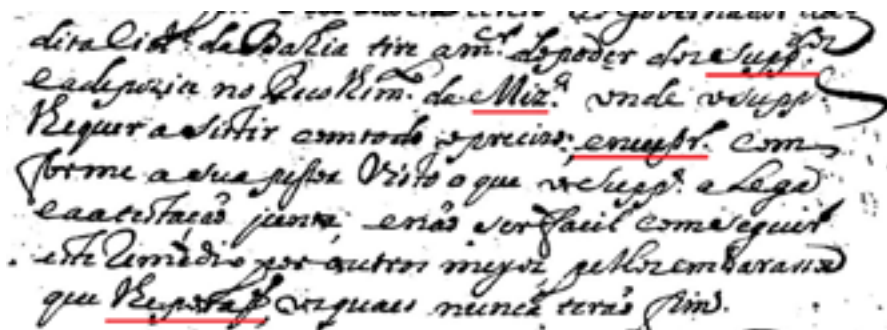 Governador
dita Cid.e da Bahia tire a m.er do poder dos supp.dos
e a depozite no Recolhim.to da Miz.a onde o supp.e
Requer asistir com todo o precizo;
forme a sua pessoa Visto o que o supp.e alega
e a atestação junta, e não ser facil conseguir
este Remedio por outros meyos, pellos embarasos
que os quaes nunca terão fim.